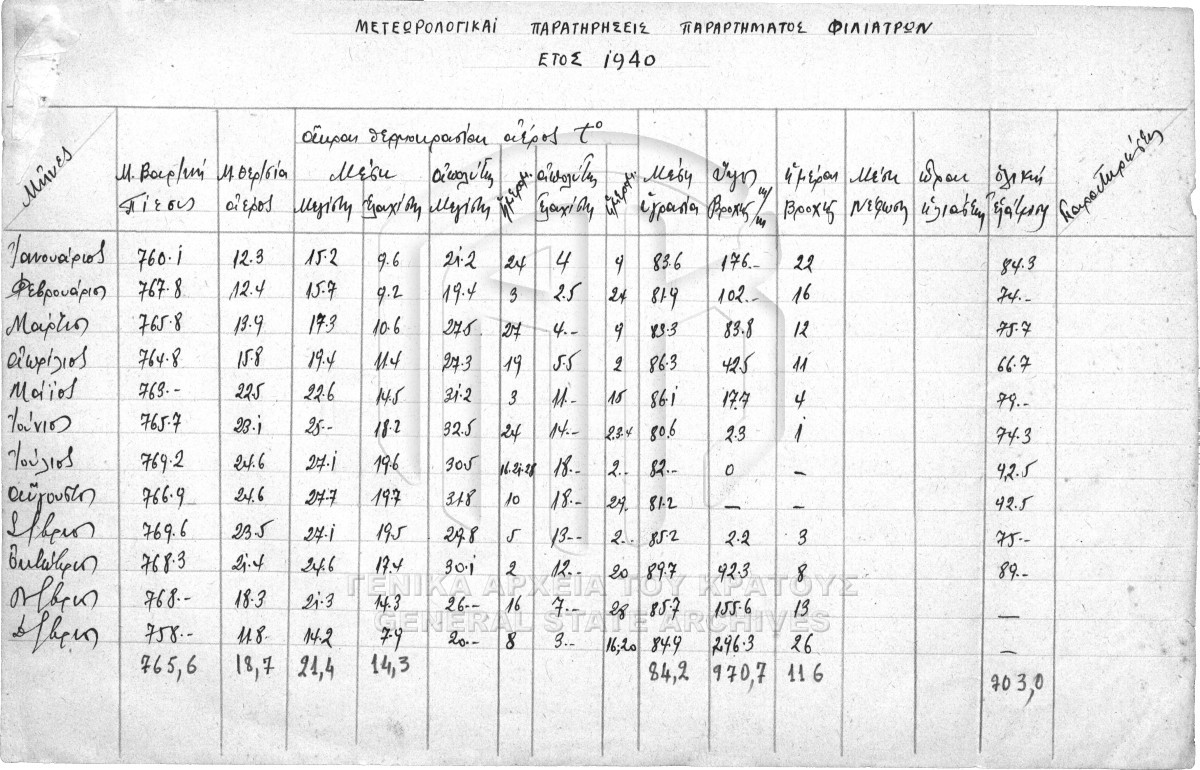 ΜΕΤΕΩΡΟΛΟΓΙΚΑΙ ΠΑΡΑΤΗΡΗΣΕΙΣ ΠΑΡΑΡΤΗΜΑΤΟΣ ΦΙΛΙΑΤΡΩΝ
ΕΤΟΣ 1940
ἄκραι θερμοκρασίαι ἀέρος t°
Μῆνες Μ. Βαρ/κὴ Μ. θερ/σία Μέση ἀπολύτη ἡμέραι ἀπολύτη ἡμέραι Μέση Ὕψος m/m ἡμέραι Μέση ὧραι ὁλικὴ Παρατηρήσεις
Πίεσις ἀέρος Μεγίστη ἐλαχίστη Μεγίστη ἐλαχίστη ὑγρασία Βροχῆς Βροχῆς Νέφωσις ἡλιάσεως ἐξάτμισις
Ἰανουάριος 760.1 12.3 15.2 9.6 21.2 24 4 9 83.6 176.- 22 84.3
Φεβρουάριος 767.8 12.4 15.7 9.2 19.4 3 2.5 24 81.9 102.- 16 74.-
Μάρτιος 765.8 13.9 17.3 10.6 27.5 27 4.- 9 83.3 83.8 12 75.7
Ἀπρίλιος 764.8 15.8 19.4 11.4 27.3 19 5.5 2 86.3 42.5 11 66.7
Μάϊος 763.- 22.5 22.6 14.5 31.2 3 11.- 15 86.1 17.7 4 79.-
Ἰούνιος 765.7 23.1 25.- 18.2 32.5 24 14.- 2.3.4 80.6 2.3 1 74.3
Ἰούλιος 769.2 24.6 27.1 19.6 30.5 16.24.28 18.- 2. 82.- 0 - 92.5
Αὔγουστος 766.9 24.6 27.7 19.7 31.8 10 18.- 29. 81.2 - - 92.5
Σ/βριος 769.6 23.5 27.1 19.5 29.8 5 13.- 2. 85.2 2.2 3 75.-
Ὀκτώβριος 768.3 21.4 24.6 17.4 30.1 2 12.- 20 89.7 92.3 8 89.-
Ν/βριος 768.- 18.3 21.3 14.3 26.- 16 7.- 28 85.7 155.6 13 -
Δ/βριος 758.- 11.8 14.2 7.9 20.- 8 3.- 16,20 84.9 296.3 26 -
765,6 18,7 21,4 14,3 84,2 970,7 116 703,0
ΓΕΝΙΚΑ ΑΡΧΕΙΑ ΤΟΥ ΚΡΑΤΟΥΣ
GENERAL STATE ARCHIVES